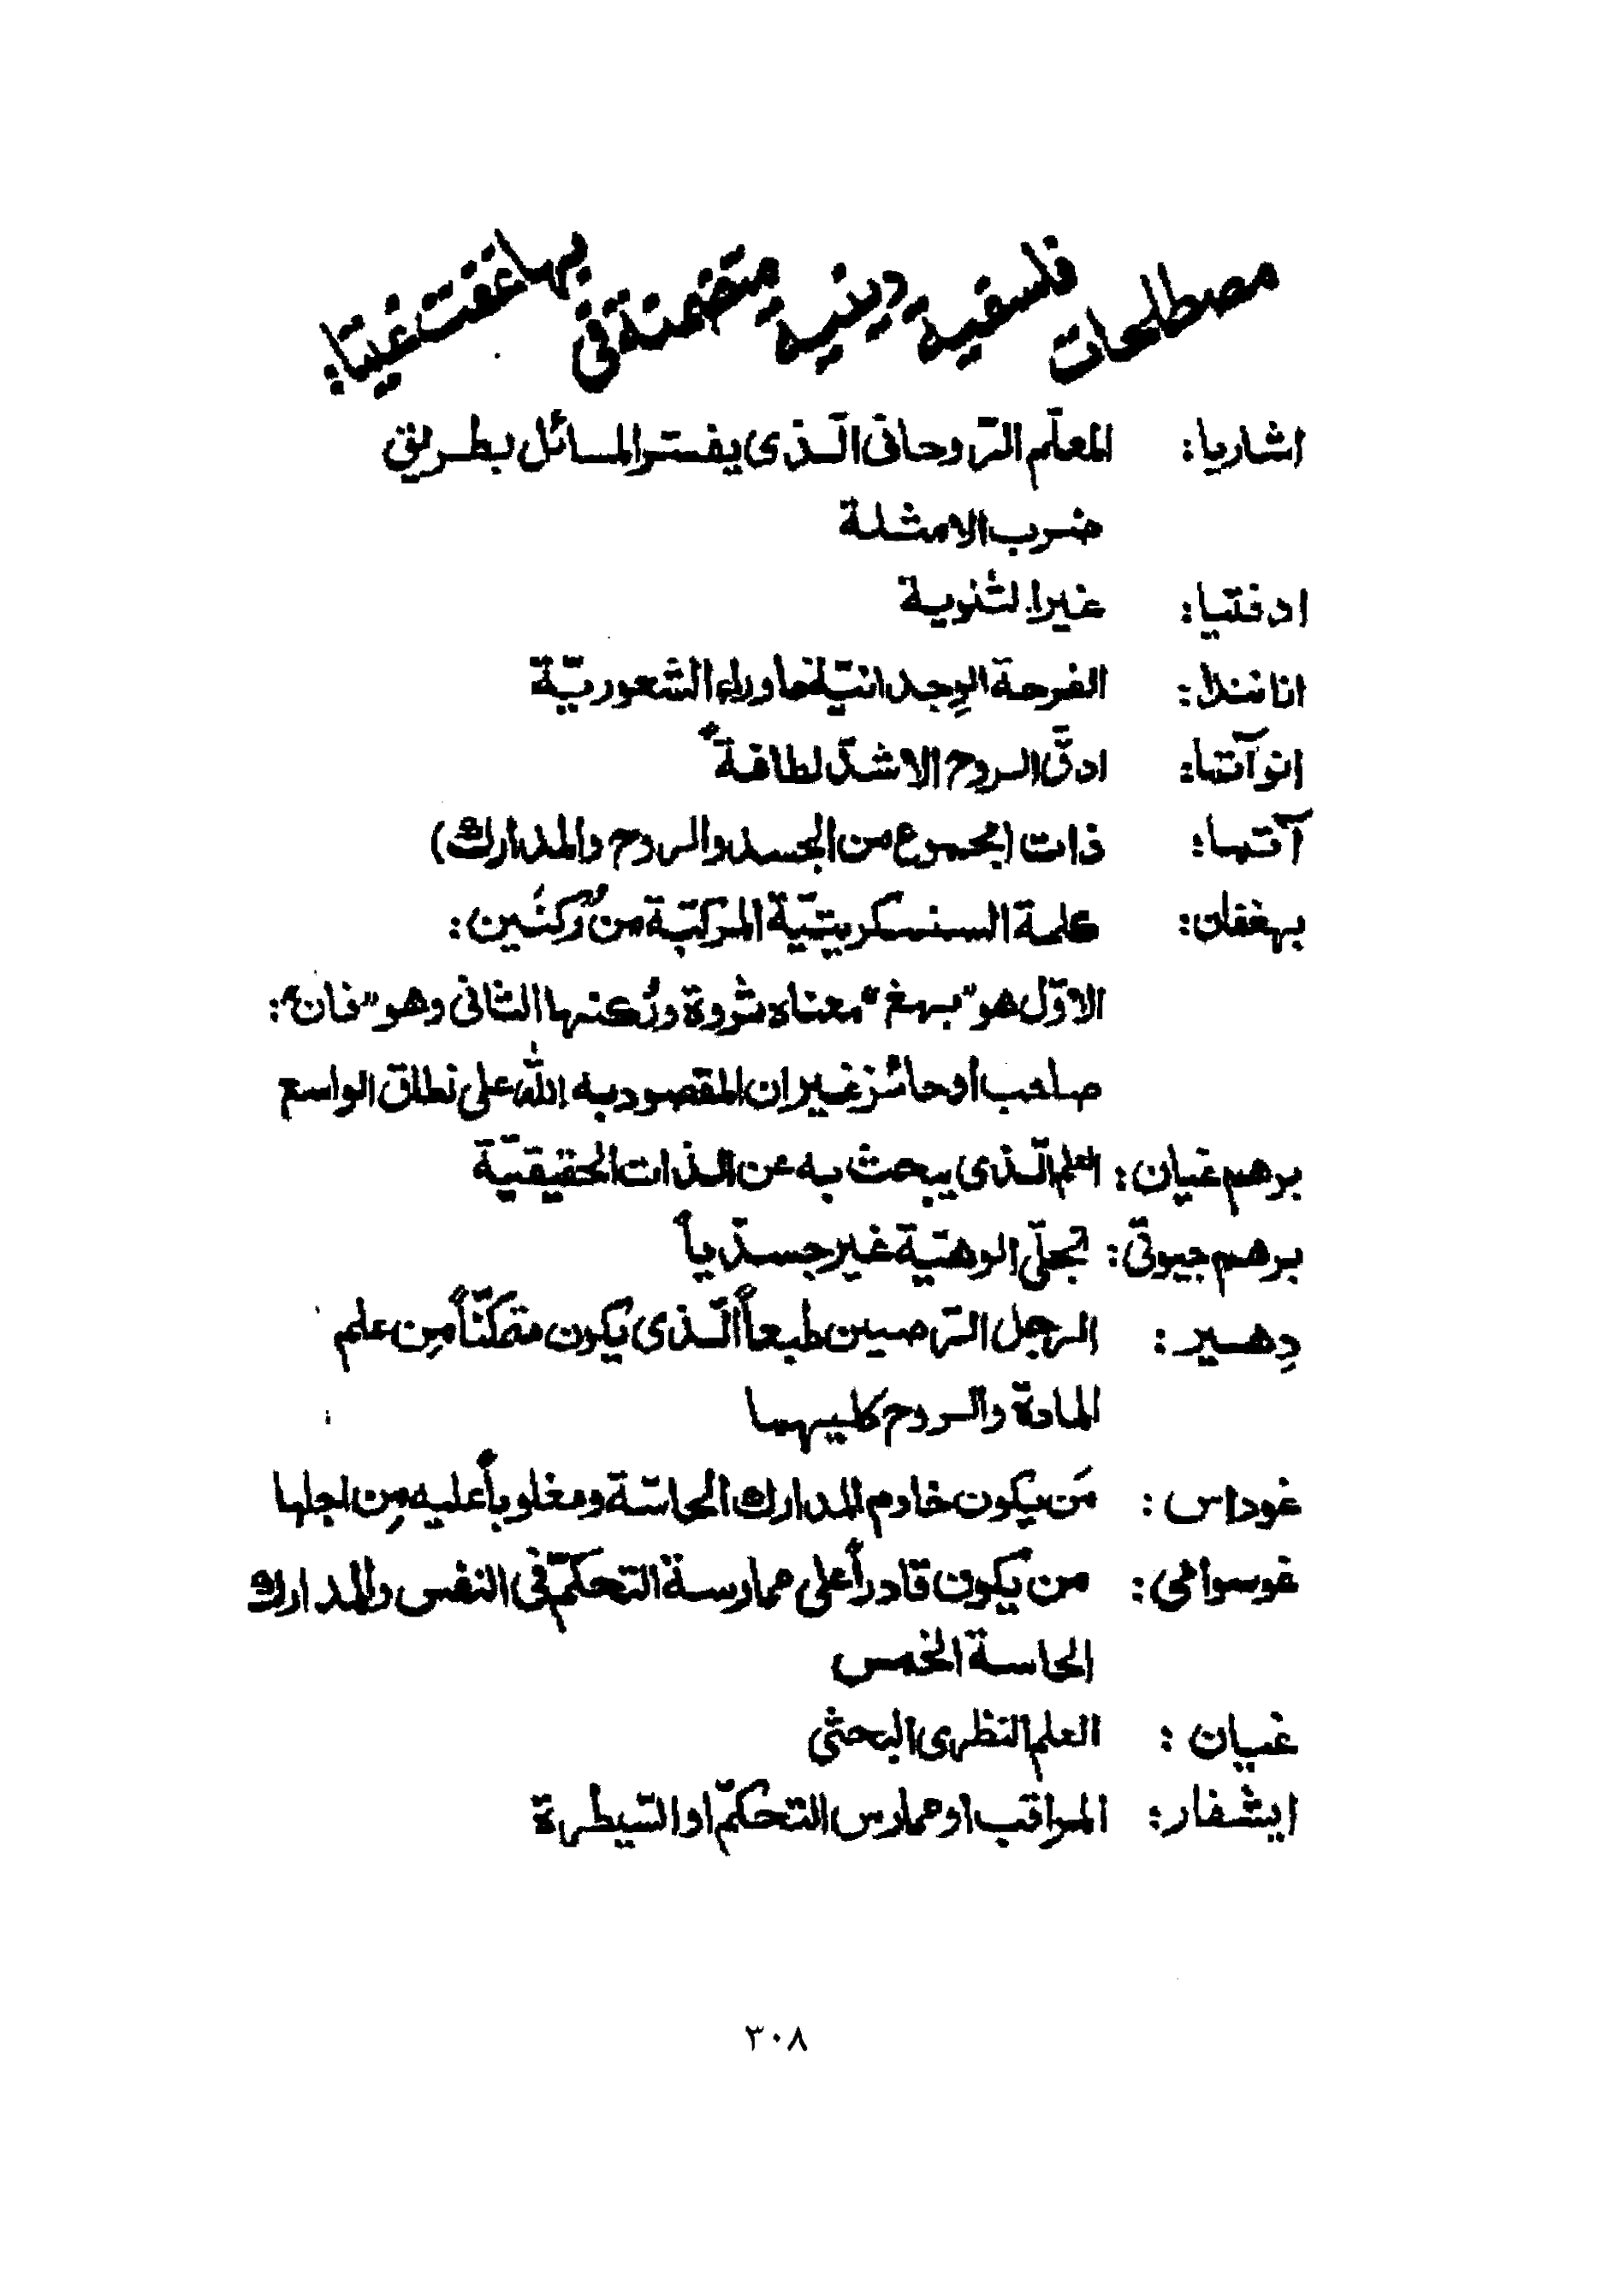 مصطلحات فلسفية دينية متضمنة في بهاغفت غيتا:
اشاريا: المعلّم الرّوحانى الّذى يفسّر المسائل بطريق
ضرب الامثلة
ادفتيا: غير الثنوية
انانندا: الفرحة الوِجدانيّة ما وراء الشعوريّة
انوآتما: ادقّ الروح الاشدّ لطافةً
آتما: ذات (مجموع من الجسد والروح والمدارك)
بهغفان: كلمة السنسكريتيّة المركّبة من رُكنَين:
الاوّل هو "بهغ" معناه ثروة ورُكنها الثانى وهو "فان":
صاحب أو حائز غير ان المقصود به اللّٰه على نطاق الواسع
برهم غيان: العلم الّذى يبحث به عن الذات الحقيقيّة
برهم جيوتى: تجلّى الوهيّة غير جسدّياً
دِهير: الرجل الرّصين طبعاً الّذى يكون متمكّناً مِن علم
المادة والروح كليهما
غوداس: مَن يكون خادم المدارك الحاسّة ومغلوباً عليه مِن اجلها
غوسوامى: من يكون قادراً على ممارسة التحكّم فى النفس والمدارك
الحاسة الخمس
غيان: العلم النظرى البحثى
ايشفار: المراقب او ممارس التحكّم او السّيطرة
٣٠٨